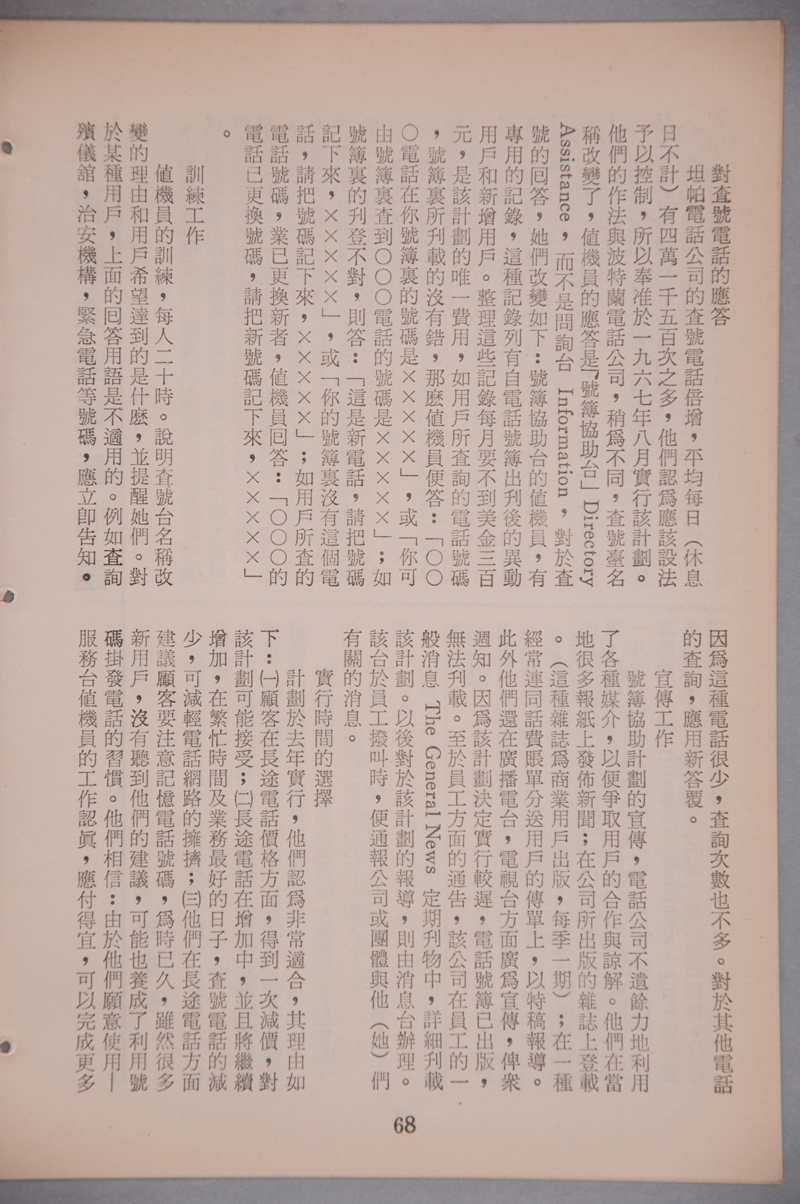 對查號電話的應答
坦帕電話公司的查號電話倍增，平均每日（休息
日不計）有四萬一千五百次之多，他們認爲應該設法
予以控制，所以奉准於一九六七年八月實行該計劃。
他們的作法與波特蘭電話公司，稍爲不同，查號臺名
稱改變了，值機員的應答是「號簿協助台」Directory
Assistance，而不是問詢台 Information，對於查
號的回答，她們改變如下：號簿協助台的值機員，有
專用的記錄，這種記錄列有自電話號簿出刋後的異動
用戶和新增用戶。整理這些記錄每月要不到美金三百
元，是該計劃的唯一費用，如用戶所查詢的電話號碼
，號簿裏所刋載的沒有錯，那麼值機員便答：「〇〇
〇電話在你號簿裏的號碼是×××××」，或「你可
由號簿裏查到〇〇〇電話的號碼是×××××」；如
號簿裏的刋登不對，則答：「這是新電話，請把號碼
記下來，×××××」，或「你的號簿裏沒有這個電
話，請把號碼記下來，×××××」；如用戶所查的
電話號碼，業已更換新者，值機員回答：「〇〇〇的
電話已更換號碼，請把新號碼記下來，×××××」
。
訓練工作
値機員的訓練，每人二十時。說明查號台名稱改
變的理由和用戶希望達到的是什麼，並提醒她們。對
於某種用戶，上面的回答用語是不適用的。例如查詢
殯儀舘，治安機構，緊急電話等號碼，應立卽告知。
因爲這種電話很少，查詢次數也不多。對於其他電話
的查詢，應用新答覆。
宣傳工作
號簿協助計劃的宣傳，電話公司不遺餘力地利用
了各種媒介，以便爭取用戶的合作與諒解。他們在當
地很多報紙上發佈新聞；在公司所出版的雜誌上登載
。（這種雜誌爲商業用戶出版，每季一期）；在一種
經常連同話費賬單分送用戶的傳單上，以特稿報導。
此外他們還在廣播電台，電視台方面廣爲宣傳，俾衆
週知。因爲該計劃決定實行較遲，電話號簿已出版，
無法刋載。至於員工方面的通告，該公司在員工的一
般消息 The General News 定期刋物中，詳細刋載
該計劃。以後對於該計劃的報導，則由消息台辦理。
該台於員工撥叫時，便通報公司或團體與他（她）們
有關的消息。
實行時間的選擇
計劃於去年實行，他們認爲非常適合，其理由如
下：㈠顧客在長途電話價格方面，得到一次減價，對
該計劃可能接受；㈡長途電話在增加中，並且將繼續
增加，在繁忙時間及業務最好的日子，查號電話的減
少，可減輕電話網路的擁擠；㈢他們在長途電話方面
建議顧客要注意記憶電話號碼，爲時已久，雖然很多
新用戶，沒有聽到他們的建議，可能也養成了利用號
碼掛發電話的習慣。他們相信：由於他們願意使用—
服務台値機員的工作認眞，應付得宜，可以完成更多
68